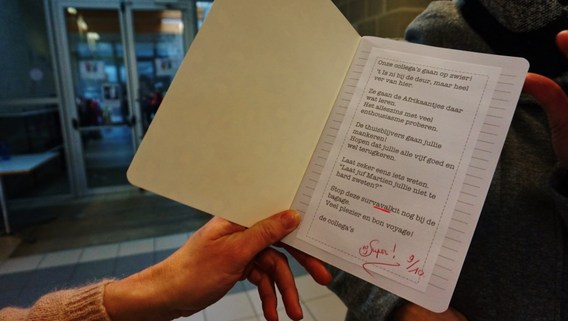 Onze collega's gaan op zwier!
't Is ni bij de deur, maar heel
ver van hier.
Ze gaan de Afrikaantjes daar
wat leren.
Het alleszins met veel
enthousiasme proberen.
De thuisblijvers gaan jullie
mankeren!
Hopen dat jullie alle vijf goed en
wel terugkeren.
Laat zeker eens iets weten.
"Laat juf Martien jullie niet te
hard zweten?"
Stop deze survavalkit nog bij de
bagage.
Veel plezier en bon voyage!
de collega's
Super! 9/10